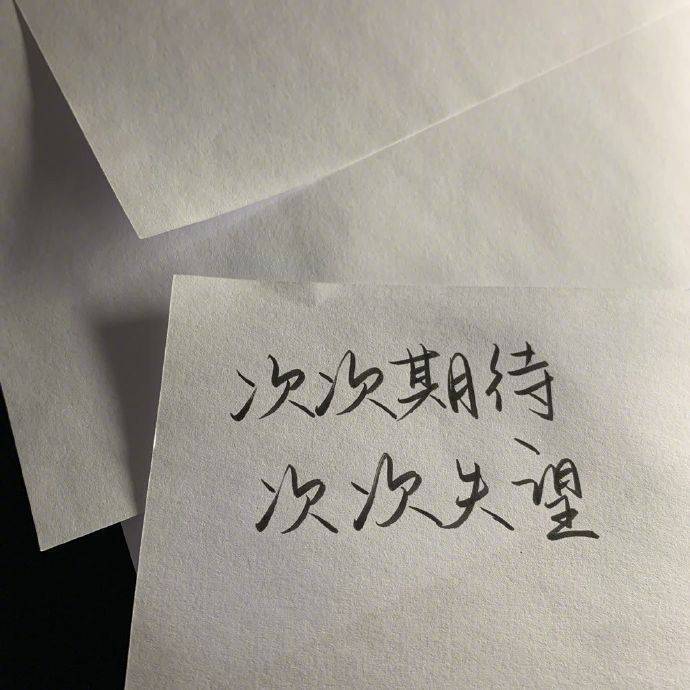 次次期待
次次失望